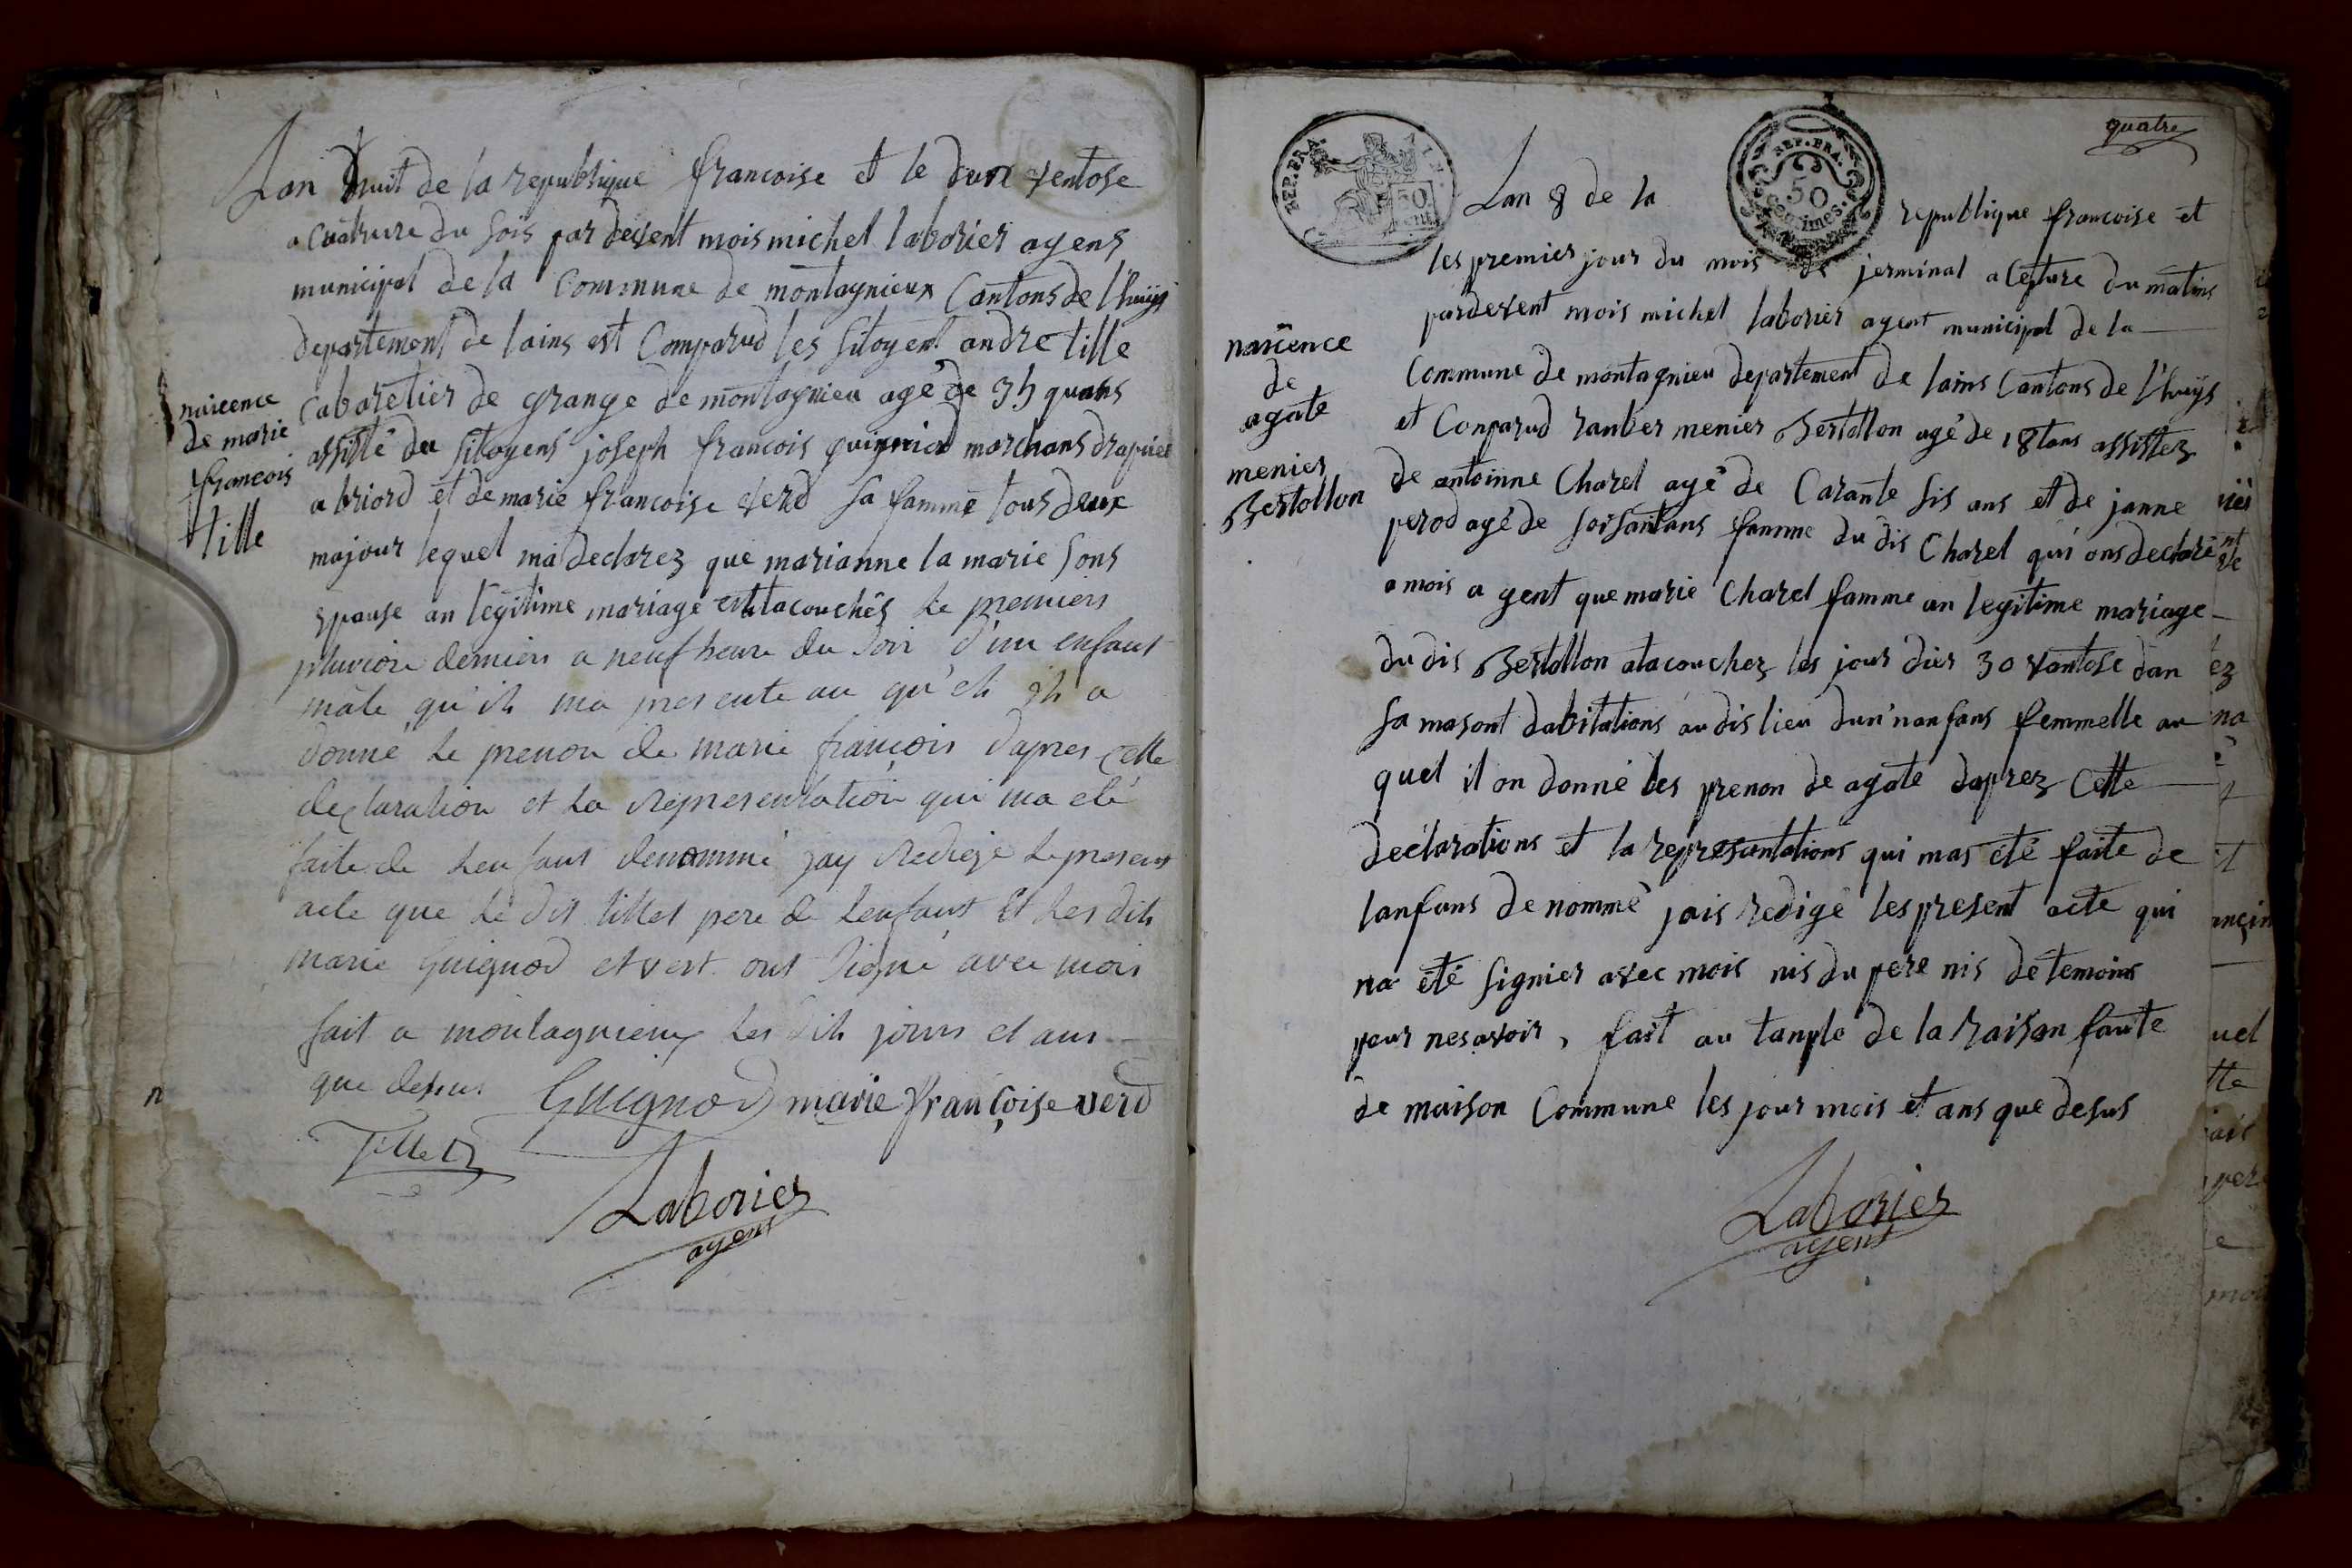 Lan huit de la republique francoise et le dune ventose
a cuatrure du sois par devent mois michel laborier agens
municipal de la Commune de montagnieux Cantons de l'huijs
departement de lains est Comparud les sitoyent andre tille
Cabaretier de grange de montagnieu agé de 35 quans
assisté du sitoyens joseph francois guigniod marchans drapier
a briord et de marie francoise verd sa famme tous deux
majour lequel ma declarez que marianne la marie sons
epouse an légitime mariage est tacouchés le premiers
pluviose derniers a neuf heure du Soir d'un enfant
mâle qu'il ma presente au qu'el il a
donné le prenon de marie françois dapres cette
declaration et la representation qui ma eté
faite de lenfant denommé jay redigé le present
acte que le dit tillet pere de lenfant et les dits
marie Guignod et vert ont signé avec mois
fait a montagnieux les dit jours et ans
que dessus
Guignod marie françoise verd
Tillet
Laborier
agent
naicence
de marie
francois
tille
quatre
REP. FRA.
50
REP. FRA.
50
centimes.
Lan 8 de la republique francoise et
les premier jour du mois de jerminal a Cepture du matins
pardevent mois michel laborier agent municipal de la
Commune de montagnieu departement de lains Cantons de l'huijs
et Conparud ranber menier Bertollon agé de 18 tans assistez
de antoinne Charel agé de Carante sis ans et de janne
perod agé de soisantans famme du dis Charel qui ons declaré
a mois a gent que marie Charel famme an legitime mariage
du dis Bertollon atacouchez les jour dier 30 vantose dan
sa masont dabitations au dis lieu dun'nanfans femmelle au
quel il on donné les prenon de agate daprez Cette
declarations et la représantations qui mas eté faite de
lanfans de nommé jais redigé les present acte qui
na été signier avec mois nis du pere nis de temoins
pour nesavoir, fait au tanple de la raison faute
de maison Commune les jour mois et ans que desus
Laborier
agent
naicence
de
agate
menier
Bertollon